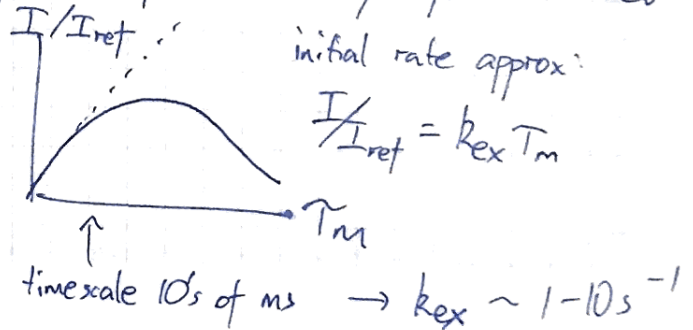 I/Iref
initial rate approx:
I/Iref = kex Tm
Tm
timescale 10's of ms → kex ~ 1-10 s⁻¹